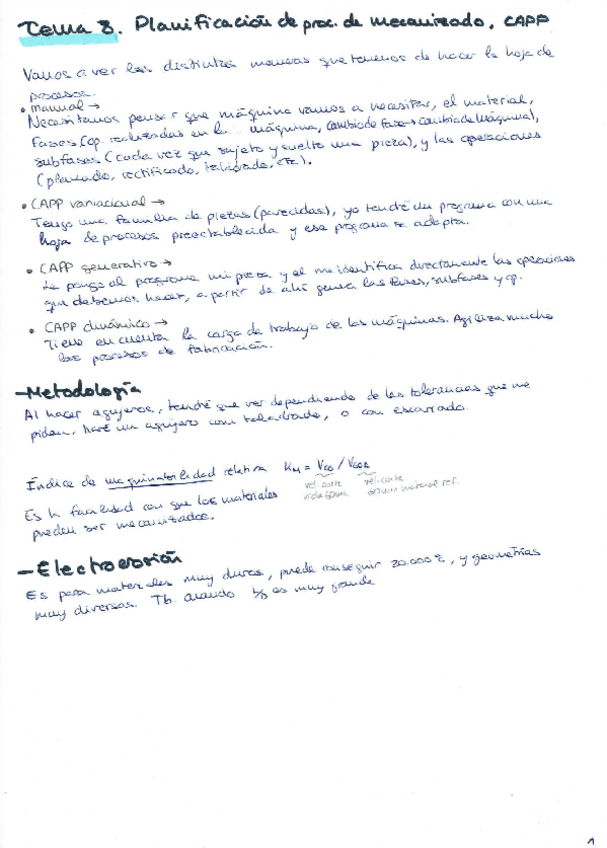 Tema 8. Planificación de proc. de mecanizado. CAPP
Vamos a ver las distintas maneras que tenemos de hacer la hoja de
procesos.
• manual →
Necesitamos pensar que máquina vamos a necesitar, el material,
fases (op. realizadas en la máquina, cambio de fase = cambio de máquina),
subfases (cada vez que sujeto y suelto una pieza), y las operaciones
(planeado, rectificado, taladrado, etc).
• CAPP variacional →
Tengo una familia de piezas (parecidas), yo tendré un programa con una
hoja de procesos preestablecida y ese programa se adapta.
• CAPP generativo →
Le pongo al programa mi pieza y el me identifica directamente las operaciones
que debemos hacer, a partir de ahí genera las fases, subfases y op.
• CAPP dinámico →
Tiene en cuenta la carga de trabajo de las máquinas. Agiliza mucho
los procesos de fabricación.
- Metodología
Al hacer agujeros, tendré que ver dependiendo de las tolerancias que me
pidan, haré un agujero con taladrado, o con escariado.
Índice de maquinabilidad relativa KM = V60 / V60R
vel. corte vel. corte
vida 60min 60min material ref.
Es la facilidad con que los materiales
pueden ser mecanizados.
- Electroerosión
Es para materiales muy duros, puede conseguir 20.000 , y geometrías
muy diversas. Tb. cuando es muy grande
1